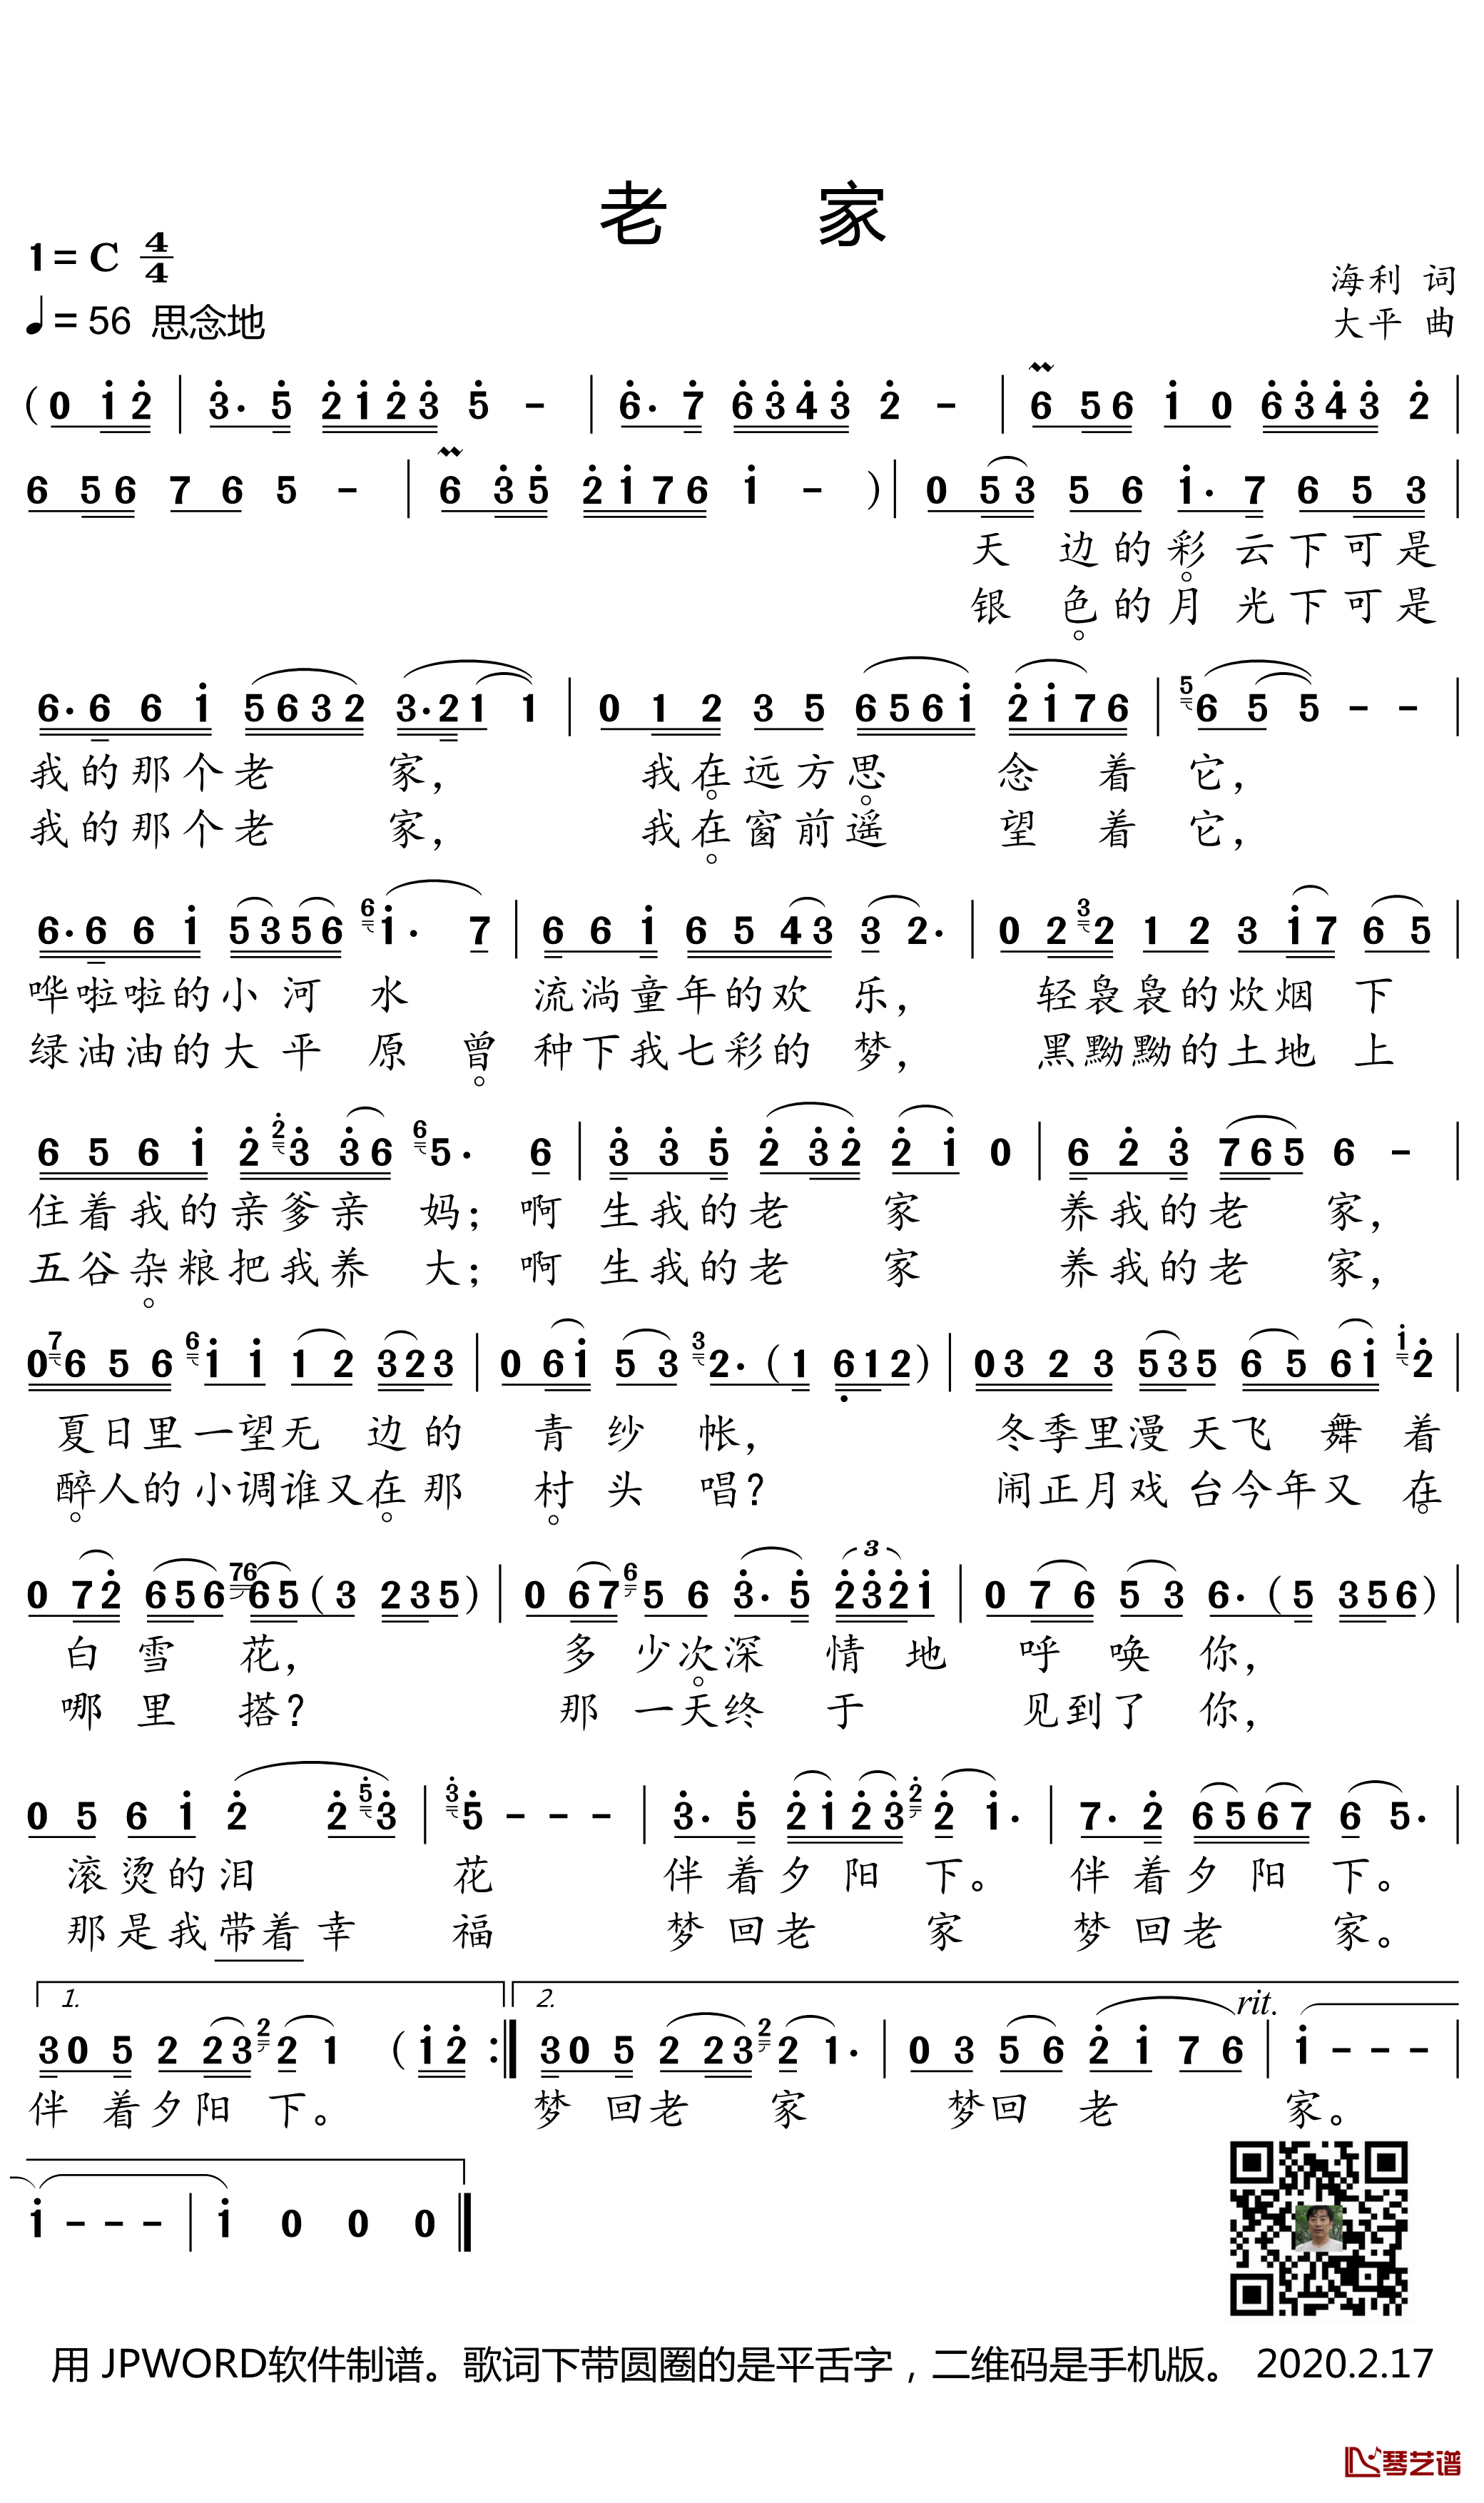 老 家
1 = C 4/4
♩ = 56 思念地
海利 词
大平 曲
( 0 1 2 | 3. 5 2 1 2 3 5 - | 6. 7 6 3 4 3 2 - | 6 5 6 1 0 6 3 4 3 2 |
6 5 6 7 6 5 - | 6 3 5 2 1 7 6 1 - ) | 0 5 3 5 6 1. 7 6 5 3 |
天 边的彩云下可是
银 色的月光下可是
6. 6 6 1 5 6 3 2 3. 2 1 1 | 0 1 2 3 5 6 5 6 1 2 1 7 6 | 5 6 5 5 - - |
我的那个老 家， 我在远方思 念 着 它，
我的那个老 家， 我在窗前遥 望 着 它，
6. 6 6 1 5 3 5 6 6 1. 7 | 6 6 1 6 5 4 3 3 2. | 0 2 3 2 1 2 3 1 7 6 5 |
哗啦啦的小河 水 流淌童年的欢 乐， 轻袅袅的炊烟 下
绿油油的大平 原 曾 种下我七彩的 梦， 黑黝黝的土地 上
6 5 6 1 2 2 3 3 6 6 5. 6 | 3 3 5 2 3 2 2 1 0 | 6 2 3 7 6 5 6 - |
住着我的亲爹亲 妈；啊 生我的老 家 养我的老 家，
五谷杂粮把我养 大；啊 生我的老 家 养我的老 家，
0 7 6 5 6 6 1 1 1 2 3 2 3 | 0 6 1 5 3 3 2. ( 1 6 1 2 ) | 0 3 2 3 5 3 5 6 5 6 1 1 2 |
夏日里一望无 边的 青 纱 帐， 冬季里漫天飞 舞 着
醉人的小调谁又在那 村 头 唱？ 闹正月戏台今年又 在
0 7 2 6 5 6 76 6 5 ( 3 2 3 5 ) | 0 6 7 6 5 6 3. 5 3 2 3 2 1 | 0 7 6 5 3 6. ( 5 3 5 6 ) |
白 雪 花， 多 少次深 情 地 呼 唤 你，
哪 里 搭？ 那 一天终 于 见到了 你，
0 5 6 1 2 2 5 3 | 3 5 - - - | 3. 5 2 1 2 3 2 2 1. | 7. 2 6 5 6 7 6 5. |
滚烫的泪 花 伴着夕阳 下。 伴着夕阳 下。
那是我带着幸 福 梦回老 家 梦回老 家。
1. 2. rit.
3 0 5 2 2 3 2 2 1 ( 1 2 :| 3 0 5 2 2 3 2 2 1. | 0 3 5 6 2 1 7 6 | 1 - - - |
伴 着夕阳 下。 梦 回老 家 梦回 老 家。
1 - - - | 1 0 0 0 |
用 JPWORD软件制谱。歌词下带圆圈的是平舌字，二维码是手机版。 2020.2.17
琴艺谱